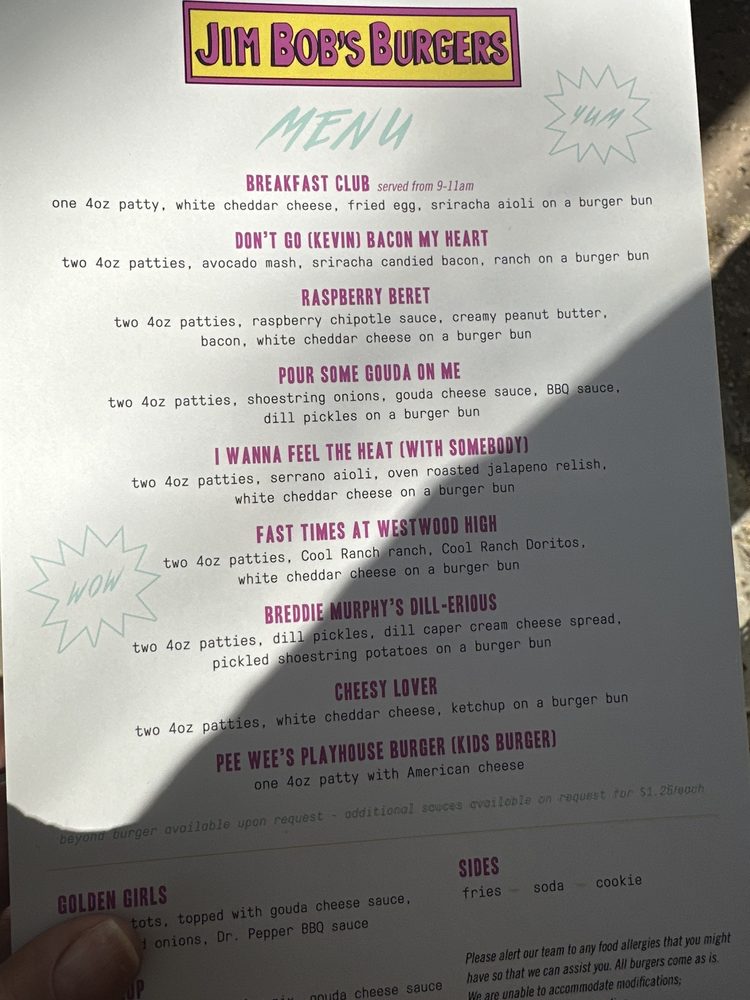 JIM BOB'S BURGERS
MENU
YUM
BREAKFAST CLUB served from 9-11am
one 4oz patty, white cheddar cheese, fried egg, sriracha aioli on a burger bun
DON'T GO (KEVIN) BACON MY HEART
two 4oz patties, avocado mash, sriracha candied bacon, ranch on a burger bun
RASPBERRY BERET
two 4oz patties, raspberry chipotle sauce, creamy peanut butter,
bacon, white cheddar cheese on a burger bun
POUR SOME GOUDA ON ME
two 4oz patties, shoestring onions, gouda cheese sauce, BBQ sauce,
dill pickles on a burger bun
I WANNA FEEL THE HEAT (WITH SOMEBODY)
two 4oz patties, serrano aioli, oven roasted jalapeno relish,
white cheddar cheese on a burger bun
FAST TIMES AT WESTWOOD HIGH
two 4oz patties, Cool Ranch ranch, Cool Ranch Doritos,
white cheddar cheese on a burger bun
WOW
BREDDIE MURPHY'S DILL-ERIOUS
two 4oz patties, dill pickles, dill caper cream cheese spread,
pickled shoestring potatoes on a burger bun
CHEESY LOVER
two 4oz patties, white cheddar cheese, ketchup on a burger bun
PEE WEE'S PLAYHOUSE BURGER (KIDS BURGER)
one 4oz patty with American cheese
beyond burger available upon request - additional sauces available on request for $1.25/each
GOLDEN GIRLS
tots, topped with gouda cheese sauce,
onions, Dr. Pepper BBQ sauce
gouda cheese sauce
SIDES
fries - soda - cookie
Please alert our team to any food allergies that you might
have so that we can assist you. All burgers come as is.
We are unable to accommodate modifications;